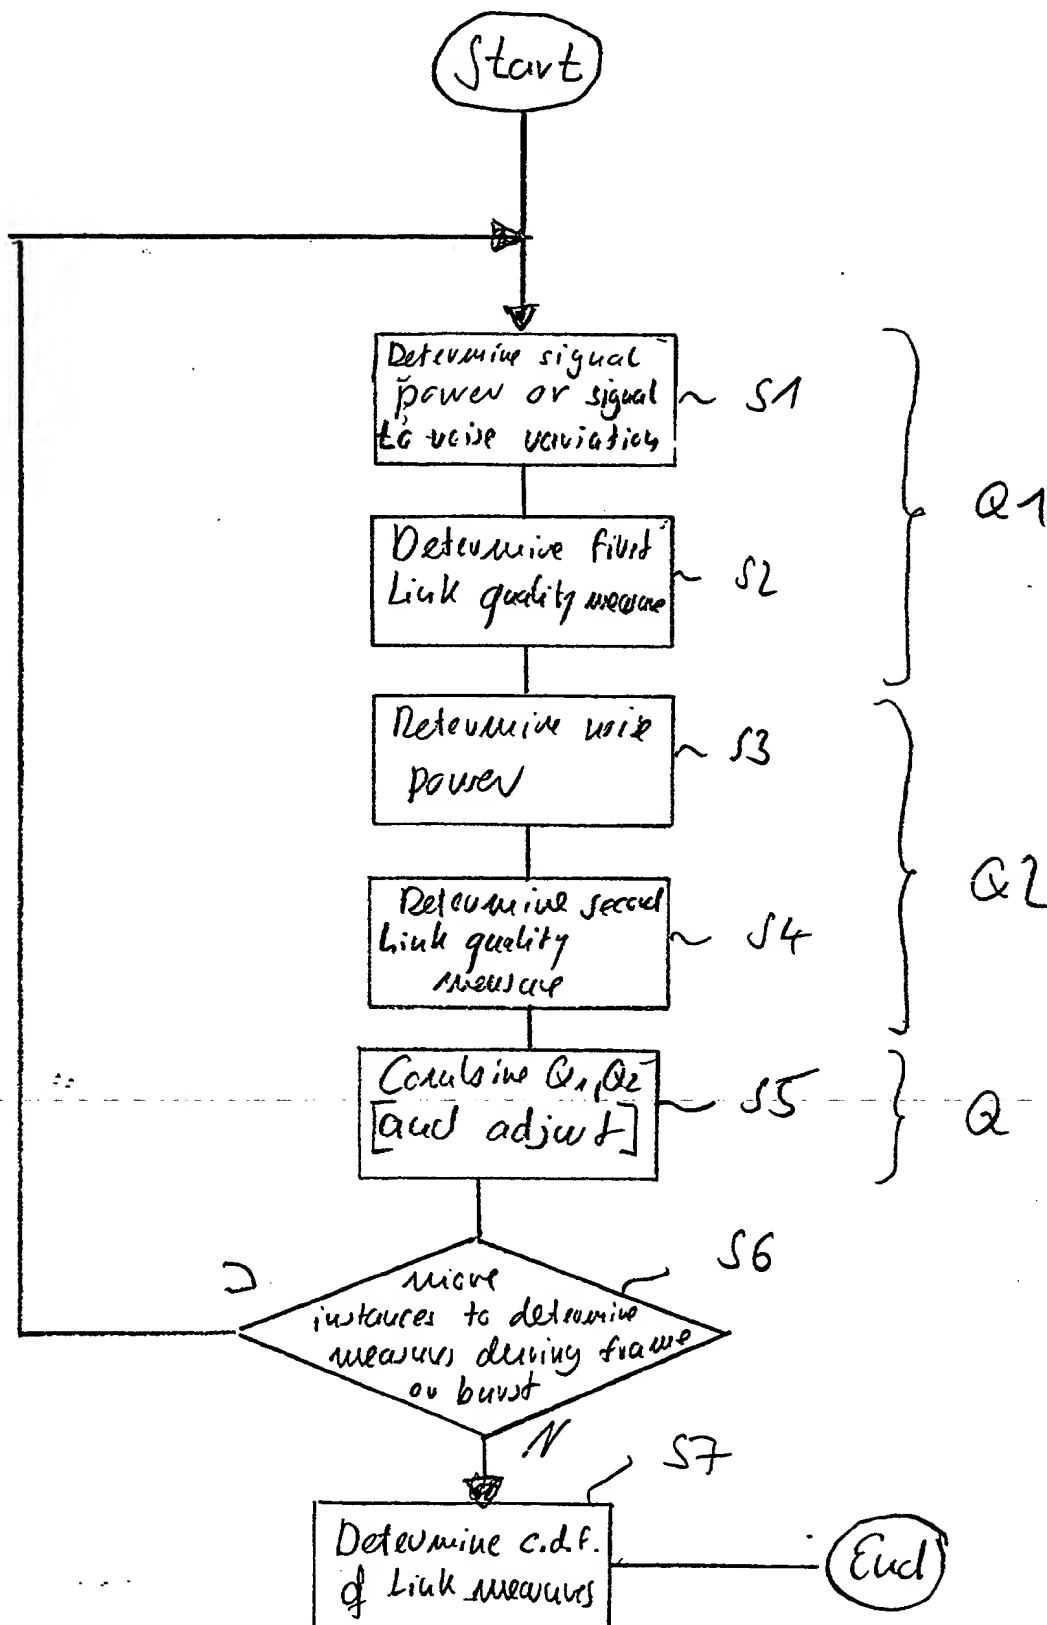 Start
Determine signal
power or signal
to noise variation
S1
Q1
Determine first
Link quality measure
S2
Determine noise
power
S3
Q2
Determine second
Link quality
measure
S4
Combine Q1, Q2
[and adjust]
S5
Q
S6
J
more
instances to determine
measures during frame
or burst
N
S7
Determine c.d.f.
of Link measures
End